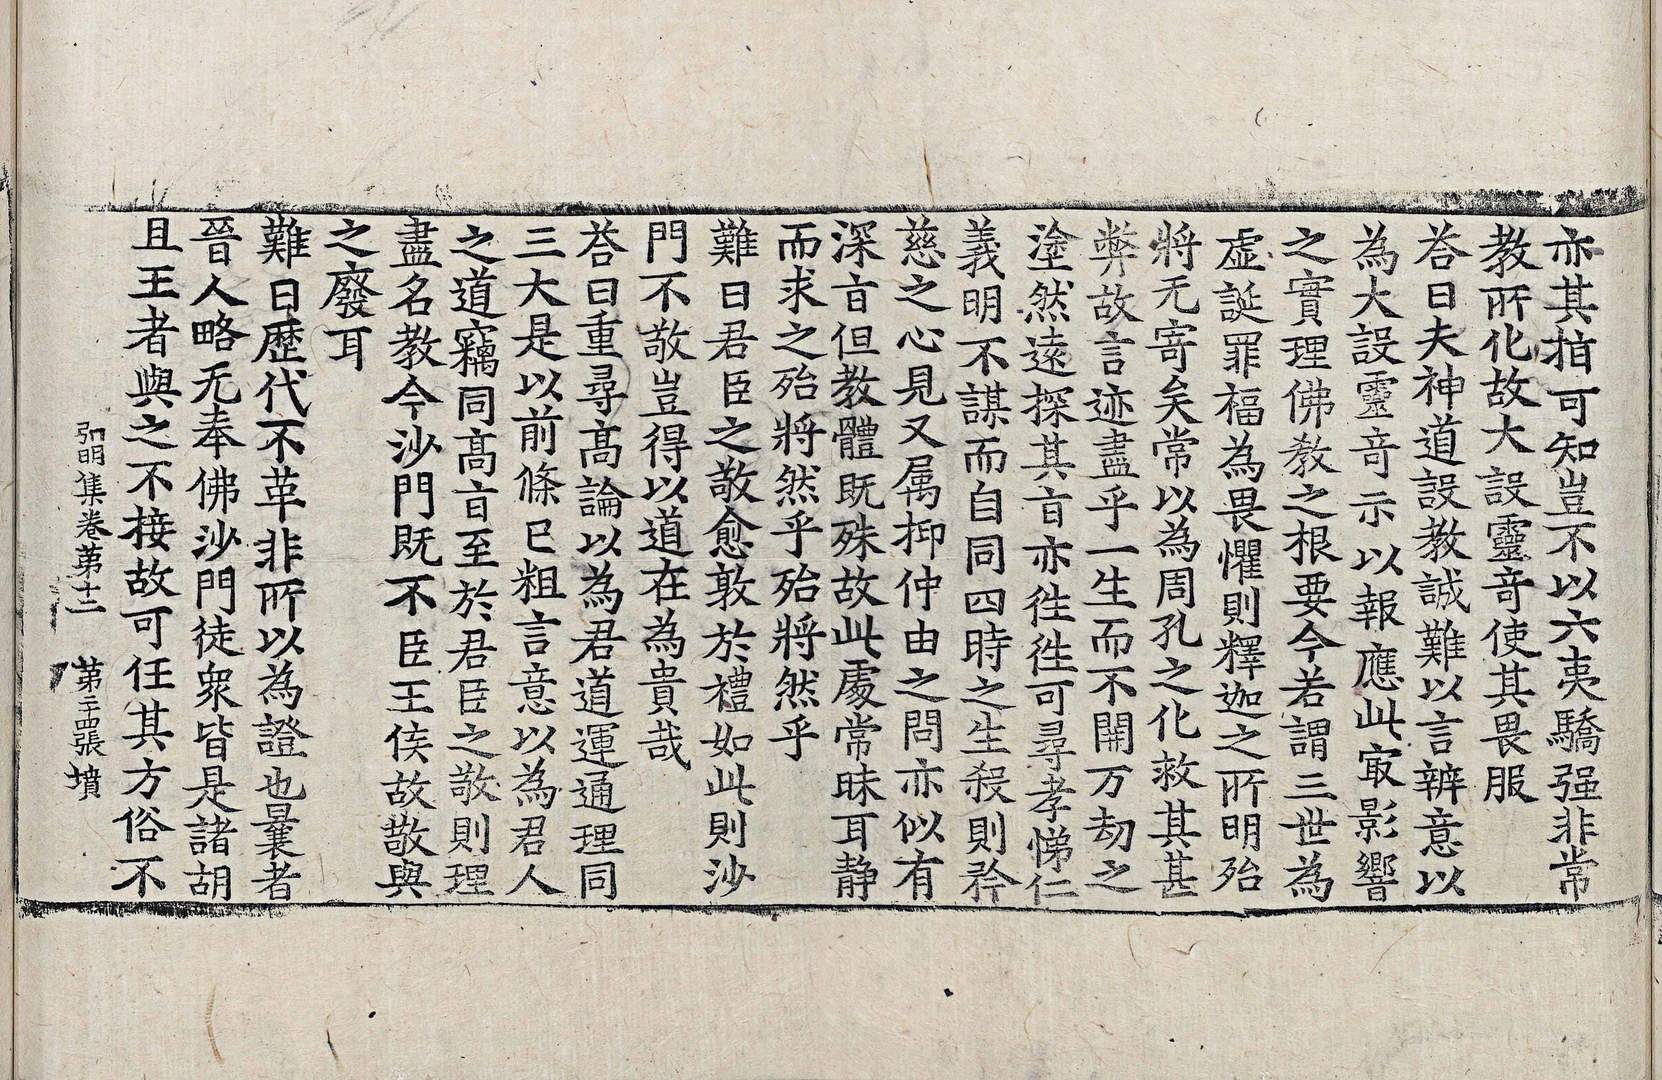 亦其指可知豈不以六夷驕强非常
教所化故大設靈竒使其畏服
荅曰夫神道設教誠難以言辨意以
為大設靈竒示以報應此㝡影響
之實理佛教之根要今若謂三世為
虛誕罪福為畏懼則釋迦之所明殆
將无寄矣常以為周孔之化救其甚
弊故言迹盡乎一生而不開万劫之
塗然遠探其旨亦徃徃可尋孝悌仁
義明不謀而自同四時之生殺則矜
慈之心見又属抑仲由之問亦似有
深旨但教體既殊故此處常昧耳静
而求之殆將然乎殆將然乎
難曰君臣之敬愈敦於禮如此則沙
門不敬豈得以道在為貴哉
荅曰重尋髙論以為君道運通理同
三大是以前條已粗言意以為君人
之道竊同髙旨至於君臣之敬則理
盡名教今沙門既不臣王侯故敬與
之廢耳
難曰歷代不革非所以為證也曩者
晉人略无奉佛沙門徒衆皆是諸胡
且王者與之不接故可任其方俗不
弘明集卷苐十二　苐二十四張　墳